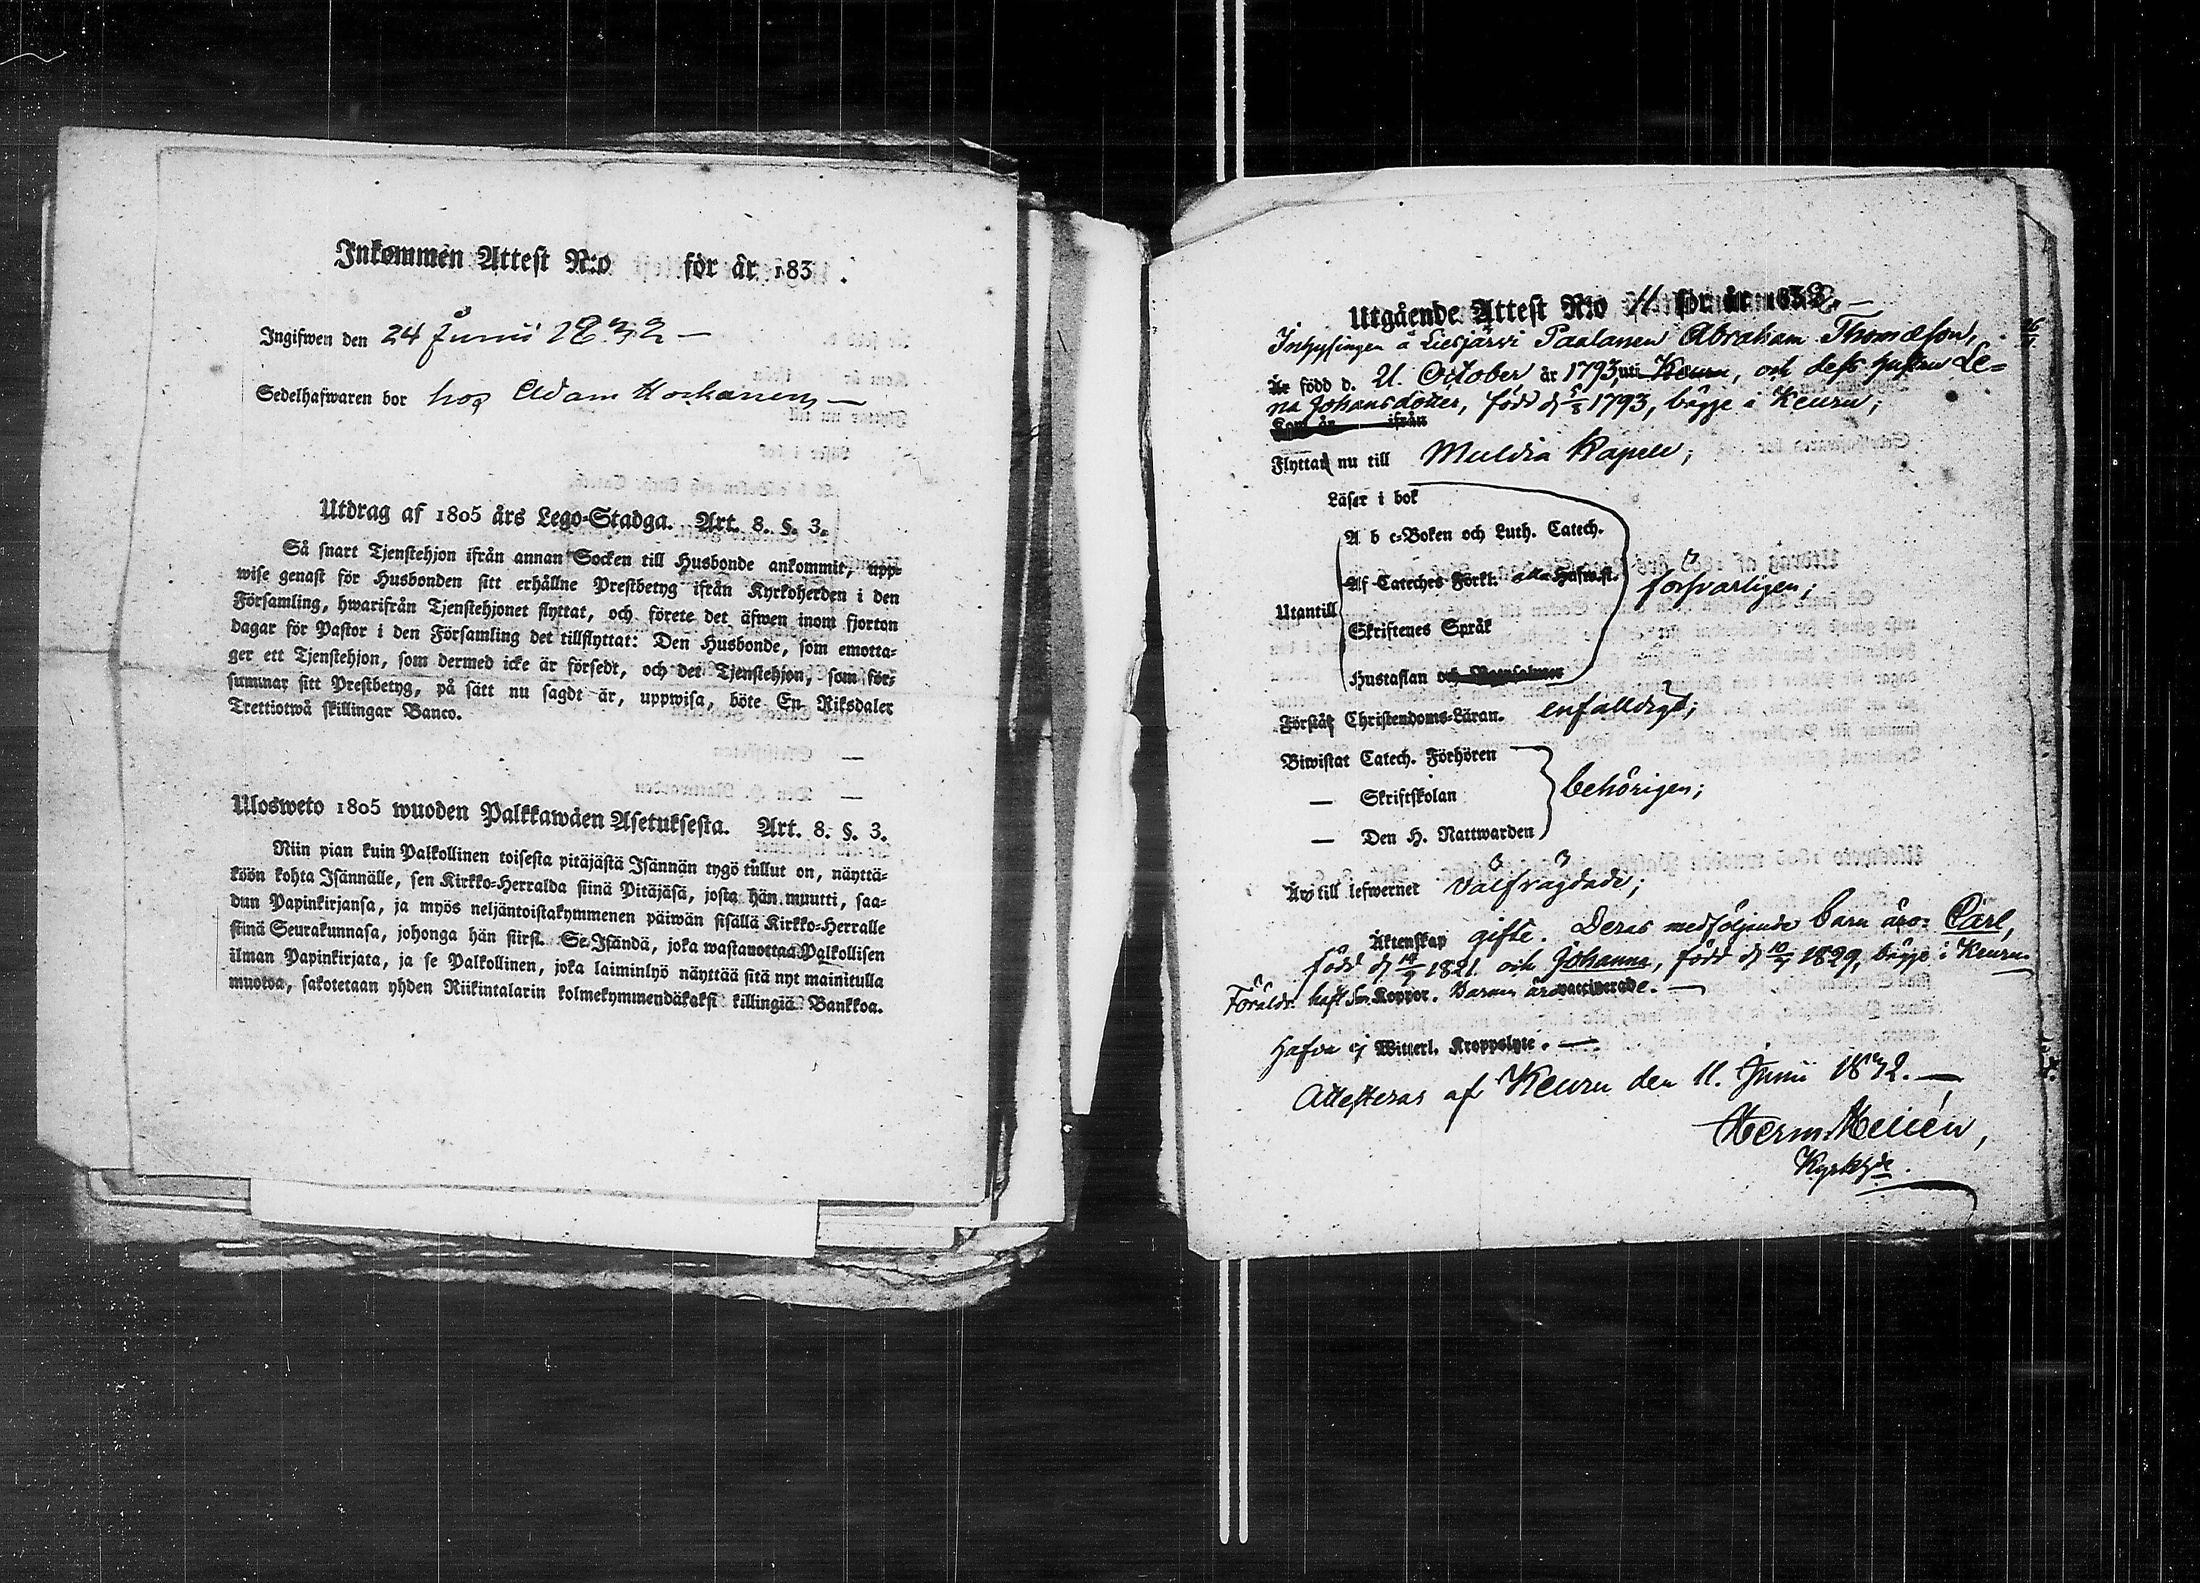 Inkommen Attest N:o för år 183 .
Ingifwen den 24 Junii 1832 —
Sedelhafwaren bor hos Adam —
Utdrag af 1805 års Lego-Stadga. Art. 8. §. 3.
Så snart Tjenstehjon ifrån annan Socken till Husbonde ankommit, upp-
wise genast för Husbonden sitt erhållne Prestbetyg ifrån Kyrkoherden i den
Församling, hwarifrån Tjenstehjonet flyttat, och förete det äfwen inom fjorton
dagar för Pastor i den Församling det tillflyttat: Den Husbonde, som emotta-
ger ett Tjenstehjon, som dermed icke är försedt, och det Tjenstehjon, som för-
summar sitt Prestbetyg, på sätt nu sagdt är, uppwisa, böte En Riksdaler
Trettiotwå skillingar Banco.
Ulosweto 1805 wuoden Palkkawäen Asetuksesta. Art. 8. §. 3.
Niin pian kuin Palkollinen toisesta pitäjästä Isännän tygö tullut on, näyttä-
köön kohta Isännälle, sen Kirkko-Herralda siinä Pitäjäsä, josta hän muutti, saa-
dun Papinkirjansa, ja myös neljäntoistakymmenen päiwän sisällä Kirkko-Herralle
siinä Seurakunnasa, johonga hän siirst. Se Isändä, joka wastanottaa Palkollisen
ilman Papinkirjata, ja se Palkollinen, joka laiminlyö näyttää sitä nyt mainitulla
muotoa, sakotetaan yhden Riikintalarin kolmekymmendäkaksi killingiä Bankkoa.
Utgående Attest N:o 11 för år 1832. —
Inhysingen å Liesjärvi Paalanen Abraham Thomasson,
Är född d. 21. October år 1793 uti Keuru, och dess hustru Le-
na Johansdotter, född d 5/8 1793, bägge i Keuru;
Kom år ifrån
Flyttar nu till Muldia Kapell;
Läser i bok
A b c-Boken och Luth. Catech.
Af Cateches Förkl. Husw.st.
försvarligen;
Utantill
Skriftenes Språk
Hustaflan och
Förstår Christendoms-Läran. enfalldigt;
Biwistat Catech. Förhören
— Skriftskolan behörigen;
— Den H. Nattwarden
Är till lefwernet välfrägdade;
Äktenskap gifte. Deras medföljande barn äro: Carl,
född d 14/9 1821 och Johanna, född d 10/7 1829, bägge i Keuru.
Föräldr. haft Koppor. Barnen äro vaccinerade. —
Hafva ej Witterl. Kroppslyte. —
Attesteras af Keuru den 11. Junii 1832. —
Herm.